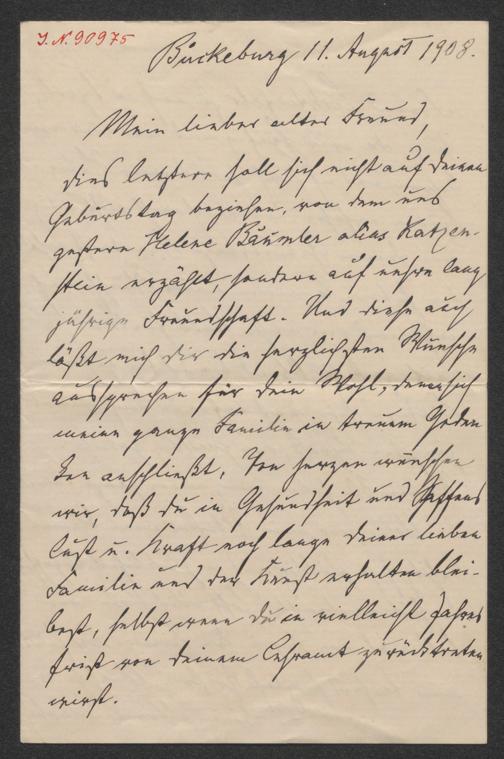 J. N. 90975
Bückeburg 11. August 1908.
Mein lieber alter Freund,
dies letztere soll sich nicht auf deinen
Geburtstag beziehen, von dem uns
gestern Helene Bäumler alias Katzen-
stein erzählt, sondern auf unsre lang
jährige Freundschaft. Und diese auch
läßt mich dir die herzlichsten Wünsche
aussprechen für dein Wohl, denen sich
meine ganze Familie in treuem Geden
ken anschließt. Von Herzen wünschen
wir, daß du in Gesundheit und Schaffens
lust u. Kraft noch lange deiner lieben
Familie und der Kunst erhalten blei-
best, selbst wenn du in vielleicht Jahres
frist von deinem Lehramt zurücktreten
wirst.